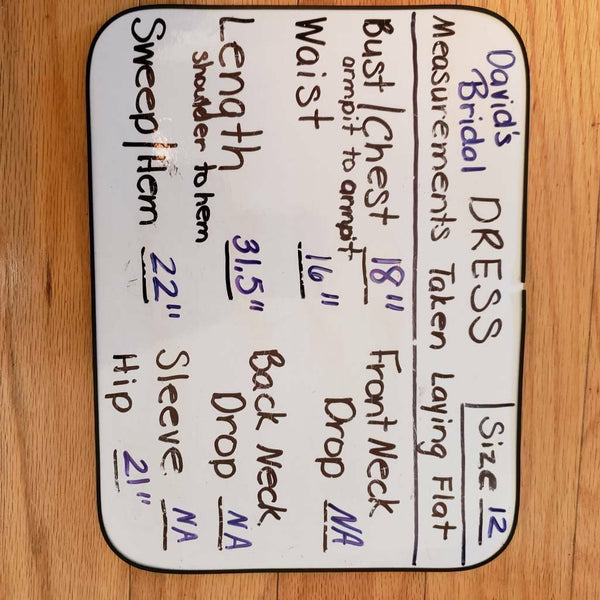 David's
Bridal DRESS Size 12
Measurements Taken Laying Flat
Bust/Chest 18"
armpit to armpit
Waist 16"
Length 31.5"
shoulder to hem
Sweep/Hem 22"
Front Neck
Drop NA
Back Neck
Drop NA
Sleeve NA
Hip 21"